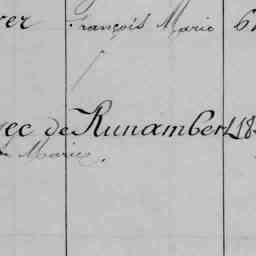 ver François Marie 61
ec de Runamber 118
Marie.